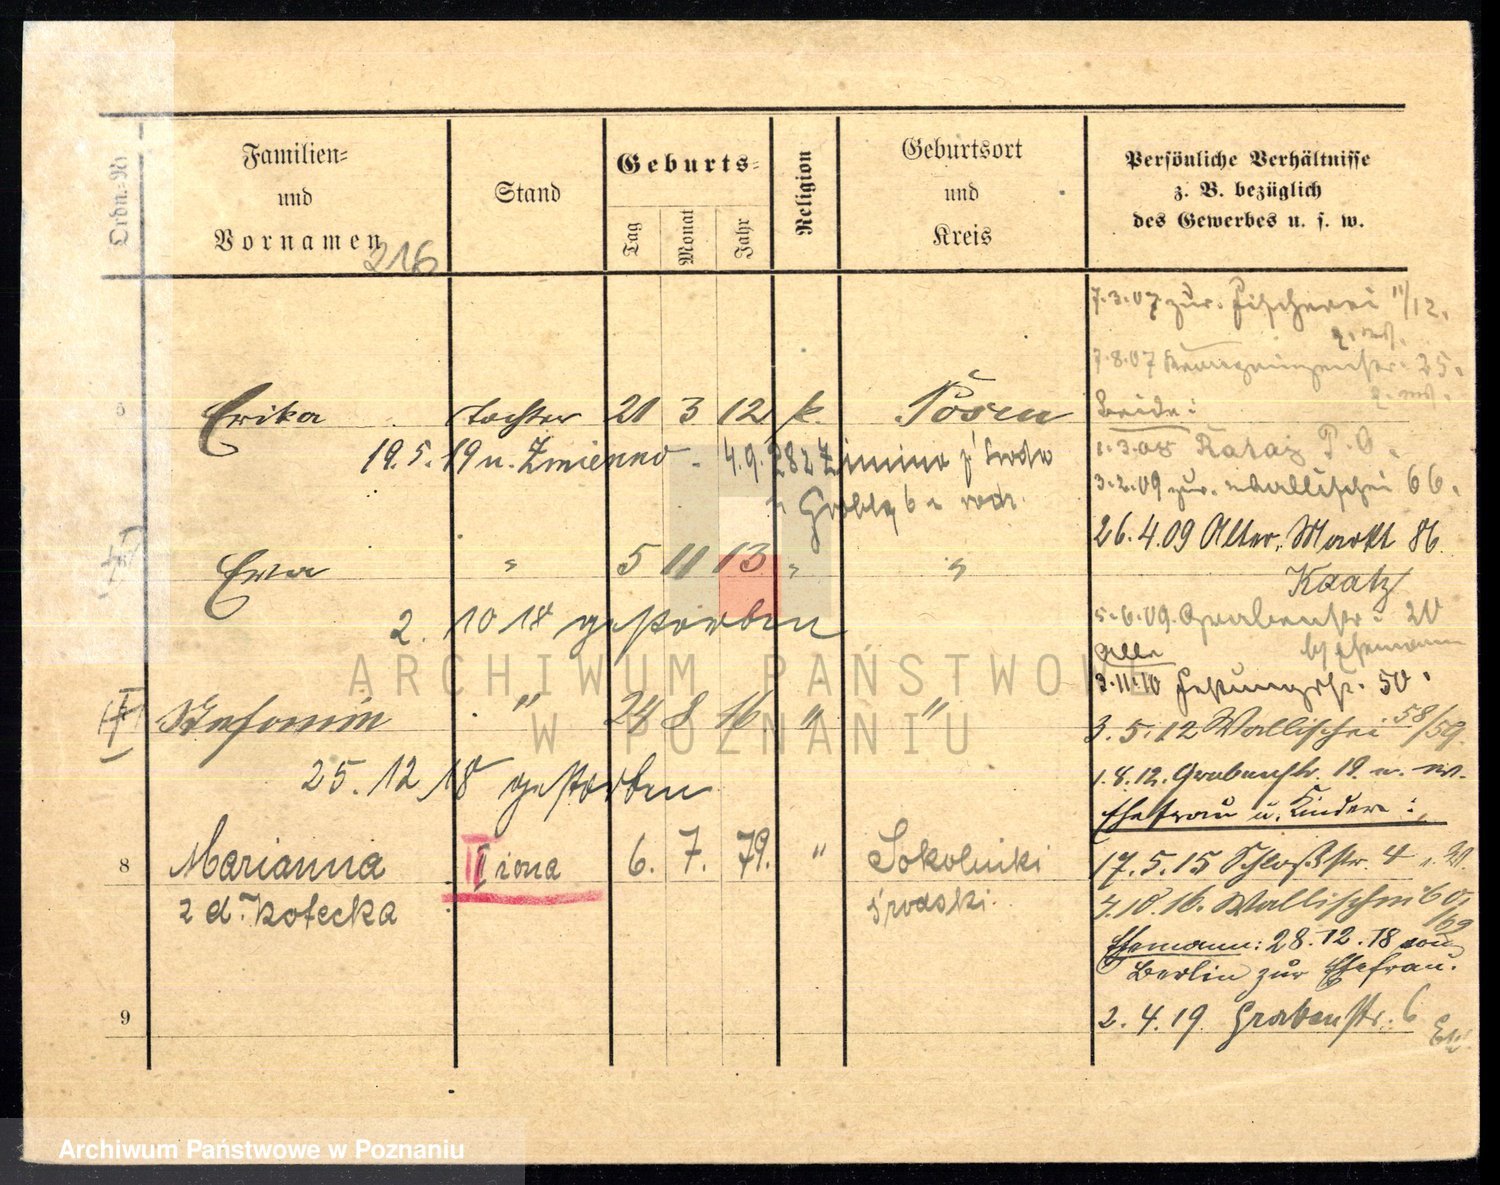 Ordn.-Nr
Familien-
und
Vornamen
216
Stand
Geburts-
Tag
Monat
Jahr
Religion
Geburtsort
und
Kreis
Persönliche Verhältnisse
z. B. bezüglich
des Gewerbes u. s. w.
Erika Tochter 21 3 12 k. Posen
19.5.19 n. Zmienno - 4.9.28 z Zimina
Grobla 6
Ewa " 5 11 13 " "
2. 10 18 gestorben
Stefanie " 24 8 16 " "
25. 12 18 gestorben
8 Marianna II żona 6. 7. 79. " Sokolniki
z d. Kotecka średski.
9
7.3.07 zur. Fischerei 11/12.
7.8.07 25.
Beide:
1.3.08 Rataj P. O.
3.2.09 zur. Wallischei 66.
26.4.09 Alter Markt 86
Kaatz
5.6.09. Grabenstr. 20
b/ Ehemann
Alle
3.11.10 Festungsstr. 50.
3.5.12 Wallischei 58/59.
1.8.12. Grabenstr. 19. n. w.
Ehefrau u. Kinder:
17.5.15 Schloßstr. 4 n. W.
7.10.16. Wallischei 60.
Ehemann: 28.12.18 von
Berlin zur Ehefrau.
2.4.19 Grabenstr. 6
ARCHIWUM PAŃSTWOWE
W POZNANIU
Archiwum Państwowe w Poznaniu